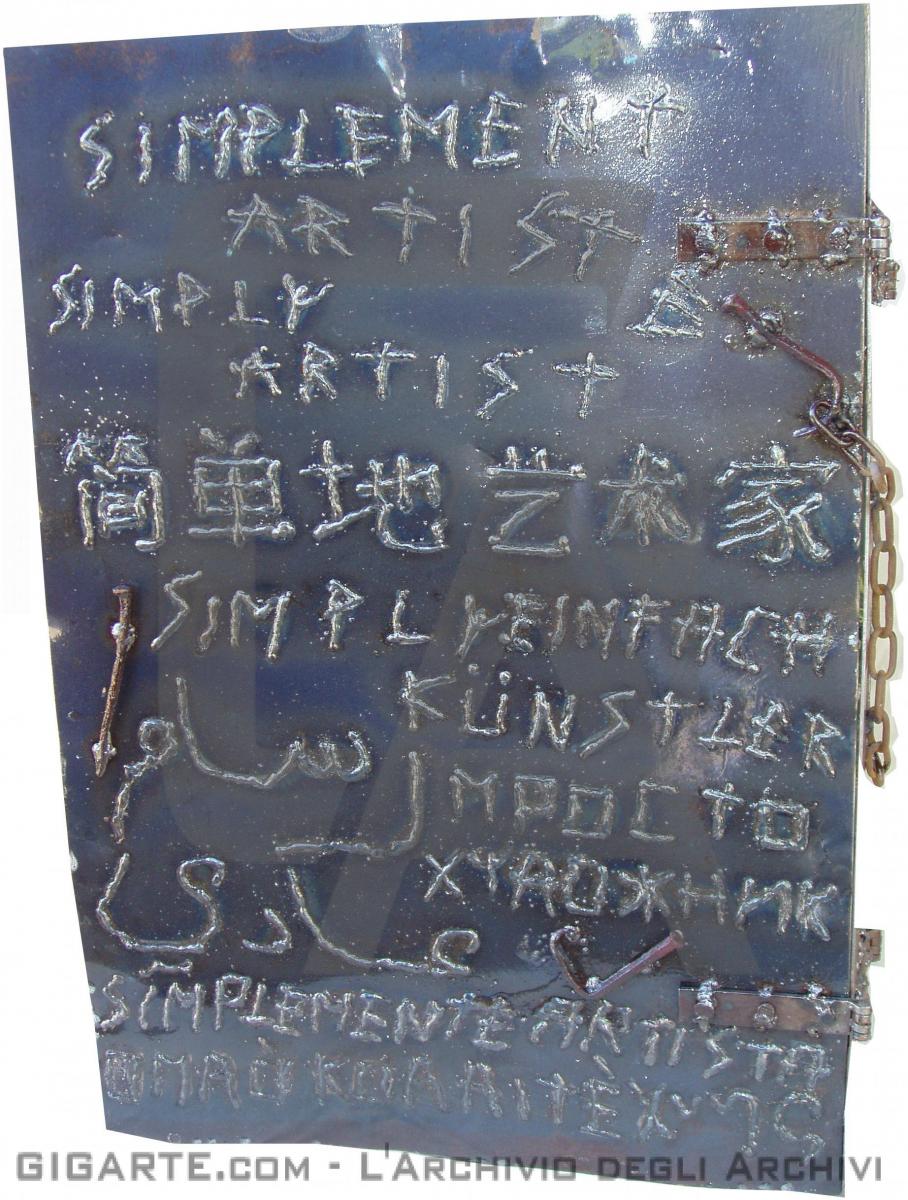 SIMPLEMENT
ARTIST
E
SIMPLY
ARTIST
简单地艺术家
SIMPLY EINFACH
KÜNSTLER
رسام
ПРОСТО
ХУДОЖНИК
عادي
SIMPLEMENTE ARTISTA
GIGARTE.COM - L'ARCHIVIO DEGLI ARCHIVI